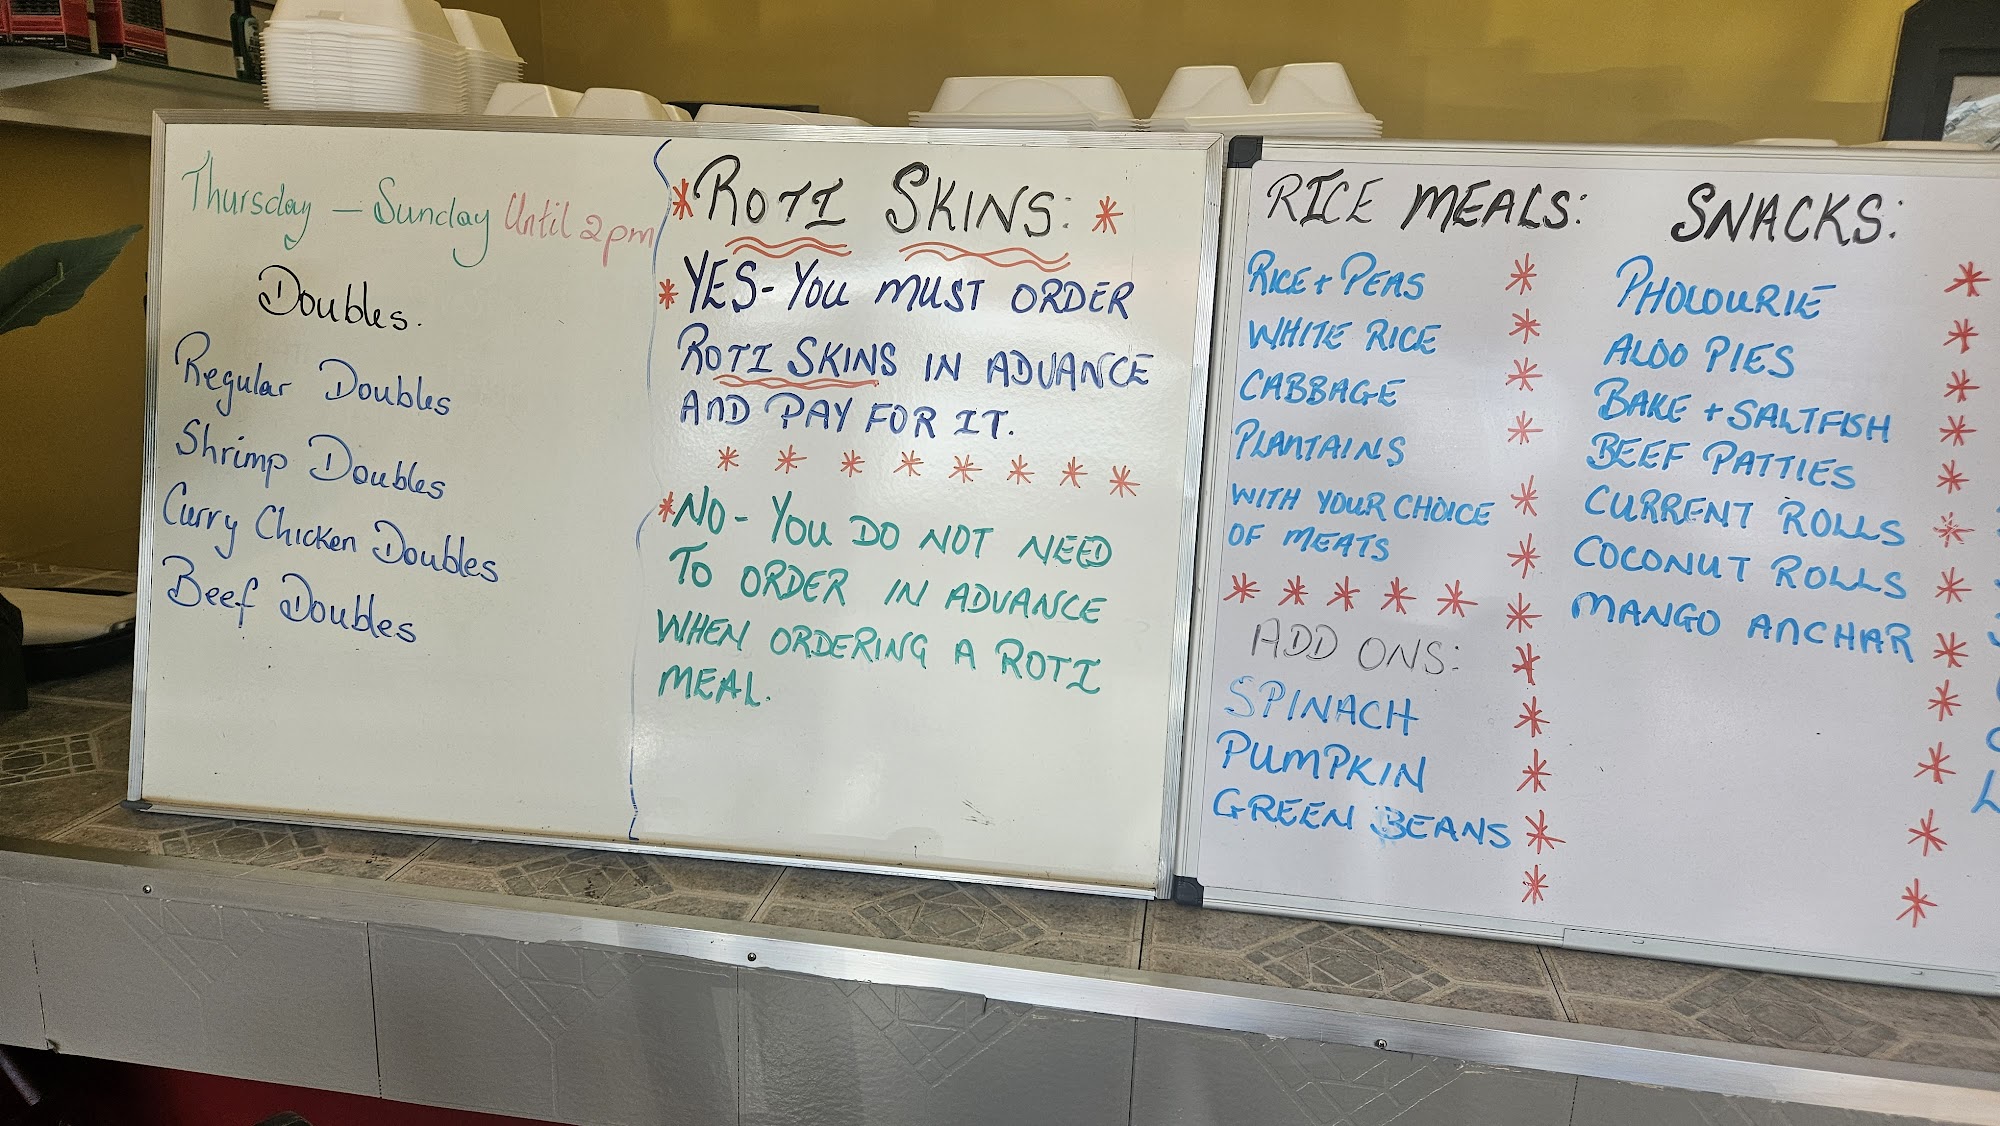 Thursday – Sunday Until 2pm
Doubles.
Regular Doubles
Shrimp Doubles
Curry Chicken Doubles
Beef Doubles
* ROTI SKINS: *
* YES - YOU MUST ORDER
ROTI SKINS IN ADVANCE
AND PAY FOR IT.
* * * * * * * *
* NO - YOU DO NOT NEED
TO ORDER IN ADVANCE
WHEN ORDERING A ROTI
MEAL.
RICE MEALS:
RICE + PEAS
WHITE RICE
CABBAGE
PLANTAINS
WITH YOUR CHOICE
OF MEATS
* * * * *
ADD ONS:
SPINACH
PUMPKIN
GREEN BEANS
SNACKS:
PHOLOURIE
ALOO PIES
BAKE + SALTFISH
BEEF PATTIES
CURRENT ROLLS
COCONUT ROLLS
MANGO ANCHAR